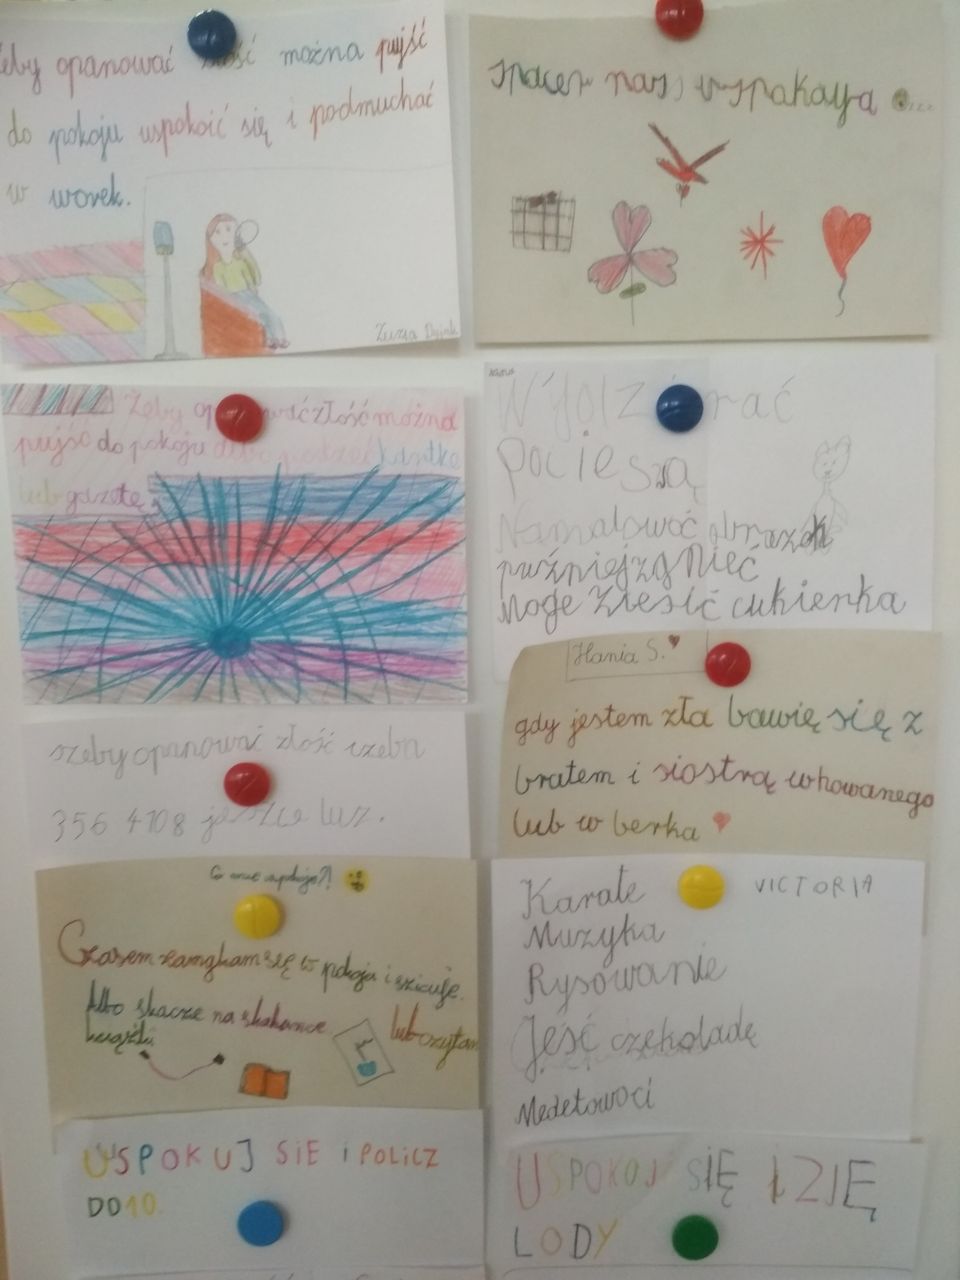 żeby opanować złość można pujść
do pokoju uspokoić się i podmuchać
w worek.
Zuzia
spacer nas uspakaya
Żeby opanować złość można
pujść do pokoju albo podrzeć kartkę
lub gazetę
rać
pocieszą
Namalować obrazek
puźniej zgnieć
Moge zieść cukierka
Hania S.
gdy jestem zła bawię się z
bratem i siostrą w howanego
lub w berka
szeby opanowac złość czeba
356 4708 jeszcze luz.
Co mnie uspokaja?!
Czasem zamykam się w pokoju i szicuje.
Albo skacze na skakance lub czytam
książki
VICTORIA
Karate
Muzyka
Rysowanie
Jeść czekoladę
Medetowoci
USPOKUJ SIE I POLICZ
DO 10
USPOKOJ SIĘ I ZIĘ
LODY